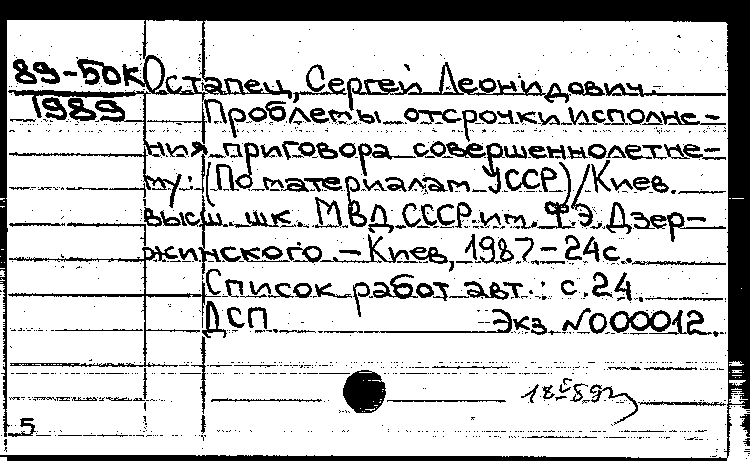 89-50К Остапец, Сергей Леонидович.
1989 Проблемы отсрочки исполне-
ния приговора совершеннолетне-
му: (По материалам УССР)/Киев.
высш. шк. МВД СССР им. Ф.Э. Дзер-
жинского. – Киев, 1987 – 24с.
Список работ авт.: с. 24.
ДСП Экз. №000012.
5